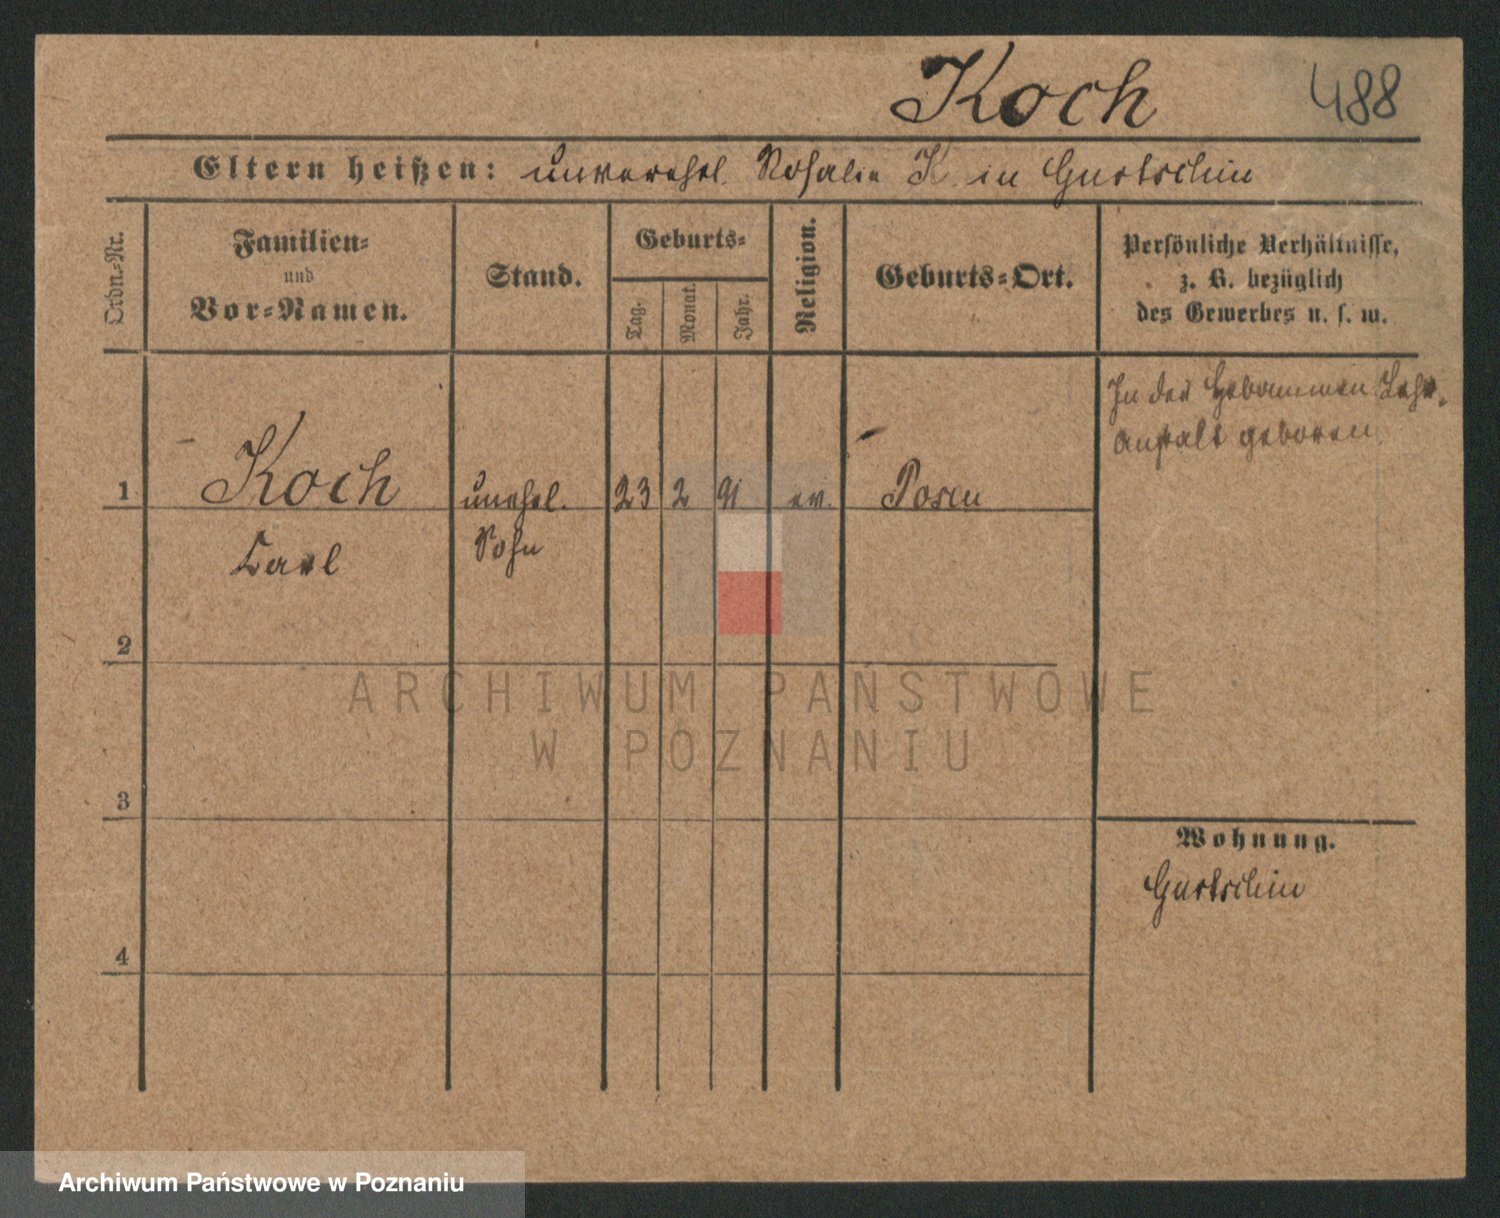 Koch
488
Eltern heißen: unverehel. Rosalie K. in Gurtschin
Ordn.-Nr.
Familien-
und
Vor-Namen.
Stand.
Geburts-
Tag.
Monat.
Jahr.
Religion.
Geburts-Ort.
Persönliche Verhältnisse,
z. B. bezüglich
des Gewerbes u. s. w.
In der Hebammen Lehr-
anstalt geboren.
1 Koch unehel. 23 2 91 ev. Posen
Carl Sohn
2
ARCHIWUM PAŃSTWOWE
W POZNANIU
3
Wohnung.
Gurtschin
4
Archiwum Państwowe w Poznaniu